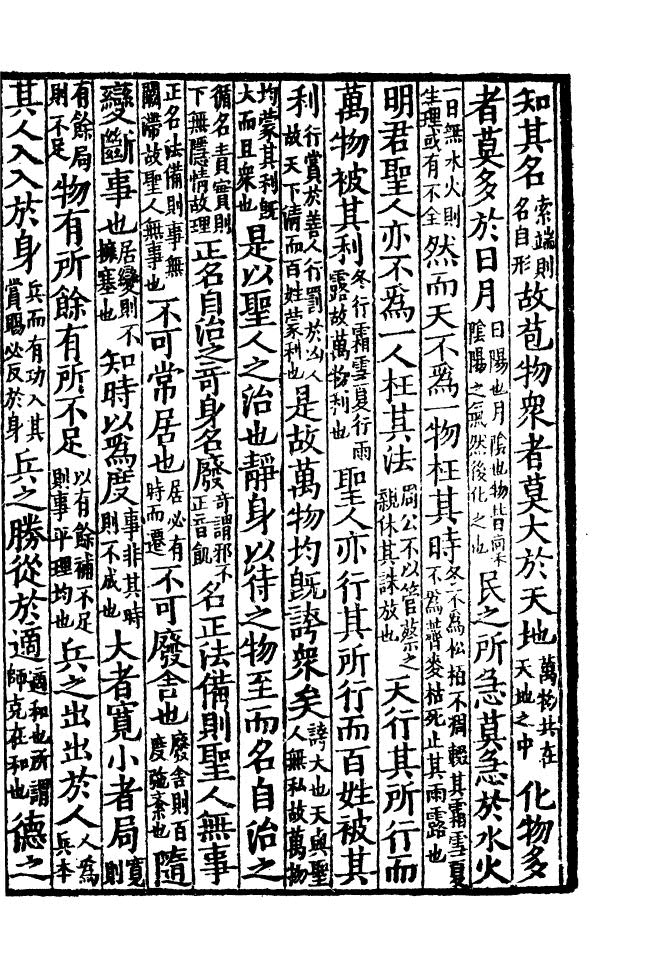 知其名索端則名自形故苞物衆者莫大於天地萬物共在天地之中化物多
者莫多於日月日陽也月陰也物皆禀陰陽之氣然後化之也民之所急莫急於水火
一日無水火則生理或有不全然而天不爲一物枉其時冬不爲松柏不稠輟其霜雪夏不爲薺麥枯死止其雨露也
明君聖人亦不爲一人枉其法周公不以管蔡之親休其誅放也天行其所行而
萬物被其利冬行霜雪夏行雨露故萬物利也聖人亦行其所行而百姓被其
利行賞於善人行罰於凶人故天下清而百姓蒙利也是故萬物均旣誇衆矣誇大也天與聖人無私故萬物
均蒙其利旣大而且衆也是以聖人之治也靜身以待之物至而名自治之
循名責實則下無隱情故理正名自治之奇身名廢奇謂邪不正音飢名正法備則聖人無事
正名法備則事無闕滯故聖人無事也不可常居也居必有時而遷不可廢舍也廢舍則百度弛紊也隨
變斷事也居變則不擁塞也知時以爲度事非其時則不成也大者寬小者局寬則
有餘局則不足物有所餘有所不足以有餘補不足則事平理均也兵之出出於人人爲兵本
其人入入於身兵而有功入其賞賜必反於身兵之勝從於適適和也所謂師克在和也德之